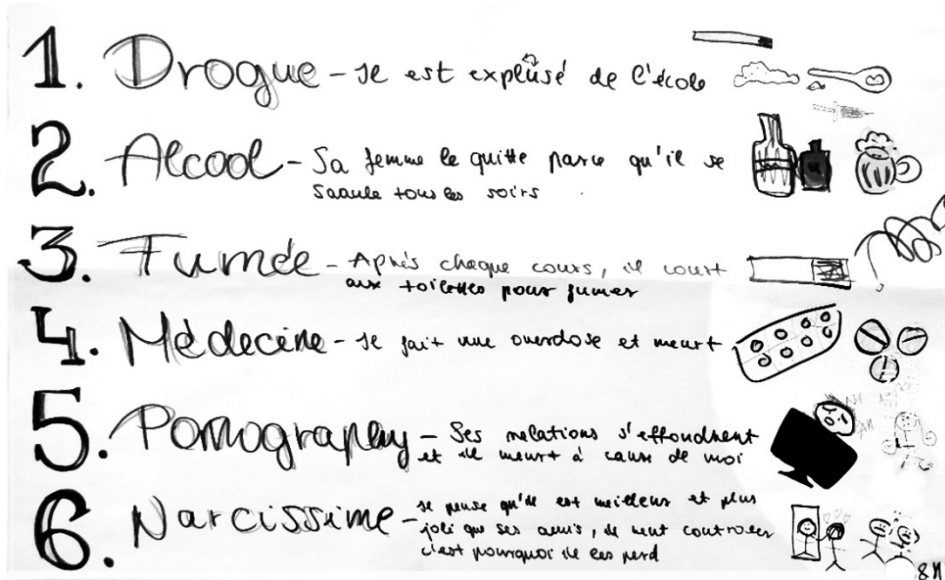 1. Drogue - Il est explusé de l'école
2. Alcool - Sa femme le quitte parce qu'il se
saoule tous les soirs
3. Fumée - Après chaque cours, il court
aux toilettes pour fumer
4. Médecine - Il fait une overdose et meurt
5. Pornography - Ses relations s'effondrent
et il meurt à cause de moi
6. Narcissime - Il pense qu'il est meilleur et plus
joli que ses amis, il veut controler
c'est pourquoi il les perd